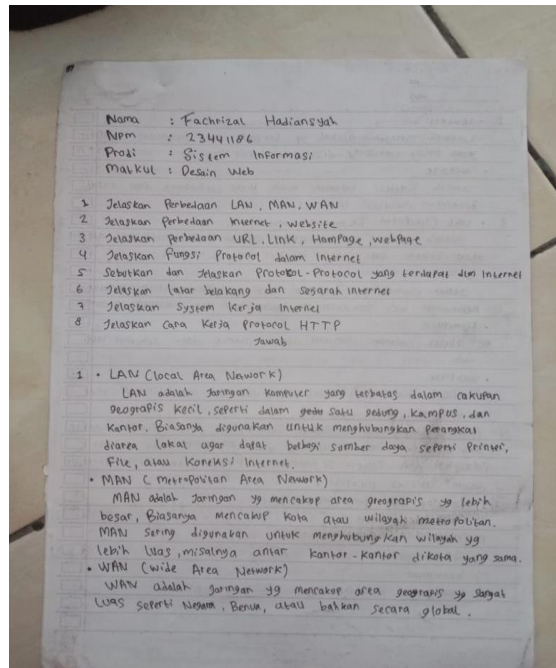 Nama : Fachrizal Hadiansyah
Npm : 23441186
Prodi : Sistem Informasi
Matkul : Desain Web
1 Jelaskan Perbedaan LAN, MAN, WAN
2 Jelaskan Perbedaan Internet, website
3 Jelaskan perbedaan URL, Link, HomPage, webPage
4 Jelaskan Fungsi Protocol dalam Internet
5 Sebutkan dan Jelaskan Protokol-Protocol yang terdapat dlm Internet
6 Jelaskan latar belakang dan sejarah internet
7 Jelaskan System Kerja Internet
8 Jelaskan Cara Kerja Protocol HTTP
Jawab
1 • LAN (local Area Network)
LAN adalah Jaringan komputer yang terbatas dalam cakupan
geografis kecil, seperti dalam satu gedung, kampus, dan
Kantor. Biasanya digunakan untuk menghubungkan perangkat
diarea lokal agar dapat berbagi sumber daya seperti Printer,
File, atau Koneksi Internet.
• MAN (Metropolitan Area Network)
MAN adalah Jaringan yg mencakup area greografis yg lebih
besar, Biasanya mencakup Kota atau wilayah metropolitan.
MAN sering digunakan untuk menghubungkan wilayah yg
lebih luas, misalnya antar kantor-kantor dikota yang sama.
• WAN (wide Area Network)
WAN adalah Jaringan yg mencakup area geografis yg sangat
Luas seperti Negara, Benua, atau bahkan secara global.